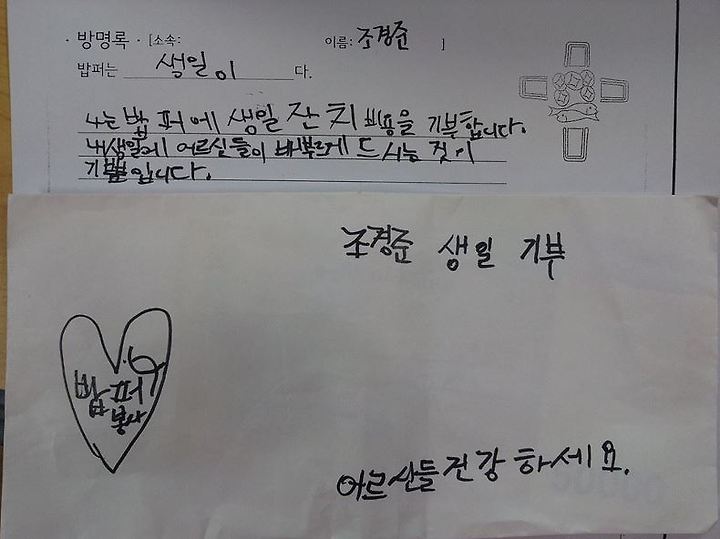 · 방명록 · [소속: 이름: 조경준 ]
밥퍼는 생일이 다.
나는 밥퍼에 생일 잔치 비용을 기부합니다.
내생일에 어르신들이 배부르게 드시는 것이
기쁨입니다.
조경준 생일 기부
밥퍼
봉사
어르신들 건강 하세요.